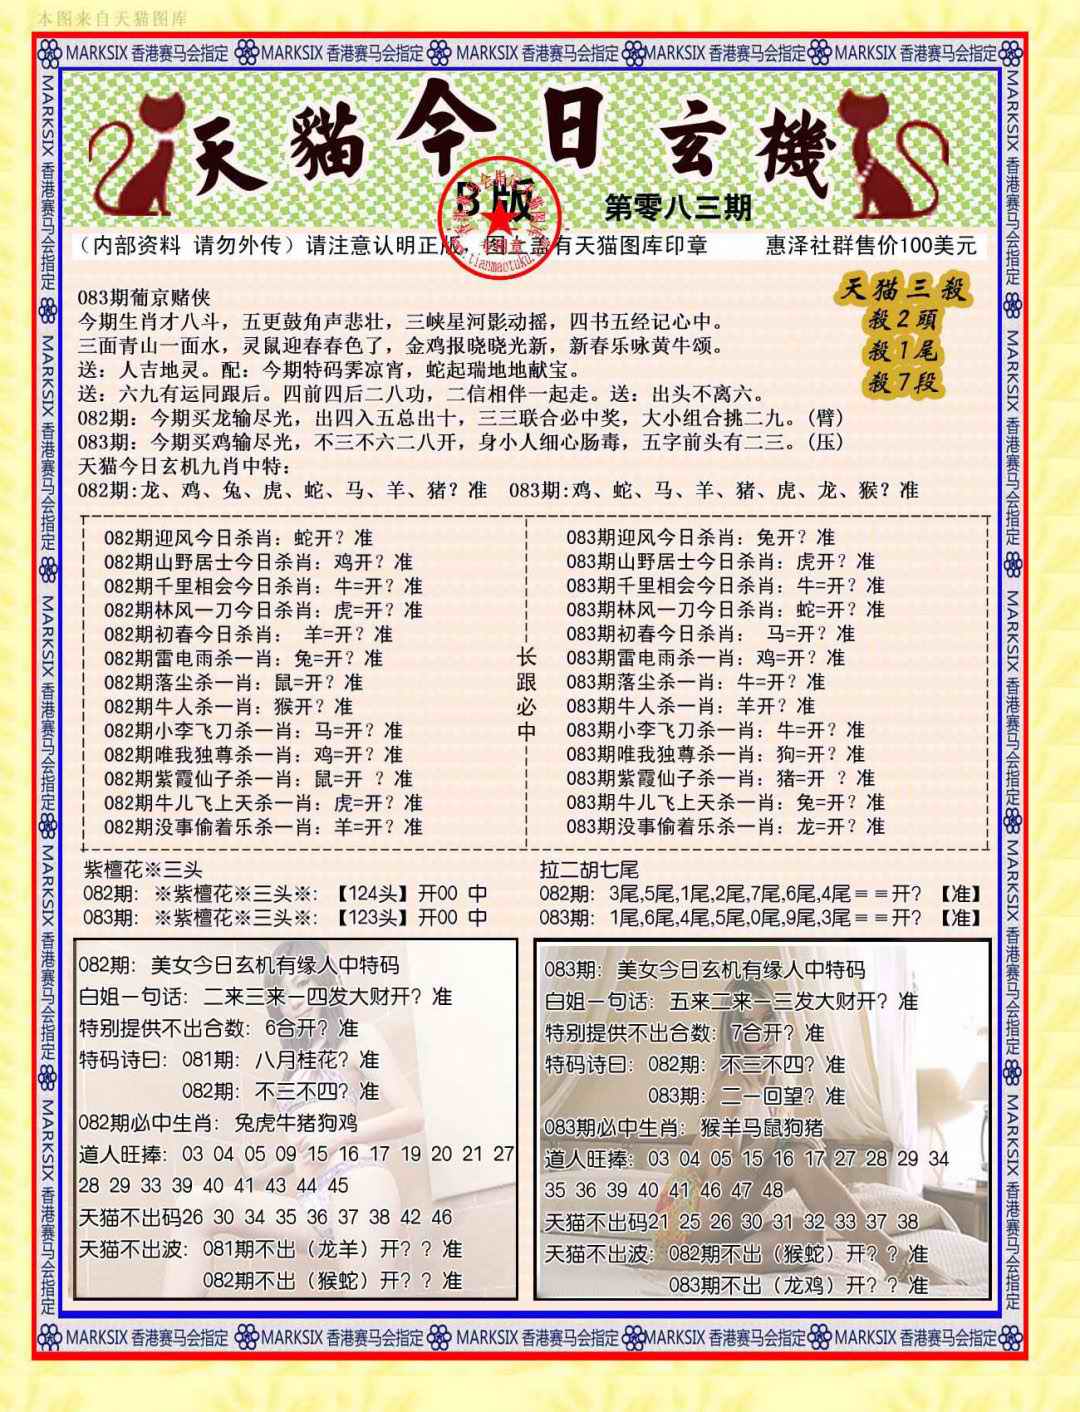 本图来自天猫图库
MARKSIX 香港赛马会指定 MARKSIX 香港赛马会指定 MARKSIX 香港赛马会指定 MARKSIX 香港赛马会指定 MARKSIX 香港赛马会指定
天貓今日玄機
B版
第零八三期
(内部资料 请勿外传)请注意认明正版,图上盖有天猫图库印章 惠泽社群售价100美元
083期葡京赌侠
今期生肖才八斗,五更鼓角声悲壮,三峡星河影动摇,四书五经记心中。
三面青山一面水,灵鼠迎春春色了,金鸡报晓晓光新,新春乐咏黄牛颂。
送:人吉地灵。配:今期特码霁凉宵,蛇起瑞地地献宝。
送:六九有运同跟后。四前四后二八功,二信相伴一起走。送:出头不离六。
082期:今期买龙输尽光,出四入五总出十,三三联合必中奖,大小组合挑二九。(臂)
083期:今期买鸡输尽光,不三不六二八开,身小人细心肠毒,五字前头有二三。(压)
天猫今日玄机九肖中特:
082期:龙、鸡、兔、虎、蛇、马、羊、猪?准 083期:鸡、蛇、马、羊、猪、虎、龙、猴?准
天猫三殺
殺2頭
殺1尾
殺7段
082期迎风今日杀肖:蛇开?准
082期山野居士今日杀肖:鸡开?准
082期千里相会今日杀肖:牛=开?准
082期林风一刀今日杀肖:虎=开?准
082期初春今日杀肖: 羊=开?准
082期雷电雨杀一肖:兔=开?准
082期落尘杀一肖:鼠=开?准
082期牛人杀一肖:猴开?准
082期小李飞刀杀一肖:马=开?准
082期唯我独尊杀一肖:鸡=开?准
082期紫霞仙子杀一肖:鼠=开 ?准
082期牛儿飞上天杀一肖:虎=开?准
082期没事偷着乐杀一肖:羊=开?准
长跟必中
083期迎风今日杀肖:兔开?准
083期山野居士今日杀肖:虎开?准
083期千里相会今日杀肖:牛=开?准
083期林风一刀今日杀肖:蛇=开?准
083期初春今日杀肖: 马=开?准
083期雷电雨杀一肖:鸡=开?准
083期落尘杀一肖:牛=开?准
083期牛人杀一肖:羊开?准
083期小李飞刀杀一肖:牛=开?准
083期唯我独尊杀一肖:狗=开?准
083期紫霞仙子杀一肖:猪=开 ?准
083期牛儿飞上天杀一肖:兔=开?准
083期没事偷着乐杀一肖:龙=开?准
紫檀花※三头
082期: ※紫檀花※三头※:【124头】开00 中
083期: ※紫檀花※三头※:【123头】开00 中
拉二胡七尾
082期: 3尾,5尾,1尾,2尾,7尾,6尾,4尾==开?【准】
083期: 1尾,6尾,4尾,5尾,0尾,9尾,3尾==开?【准】
082期:美女今日玄机有缘人中特码
白姐一句话:二来三来一四发大财开?准
特别提供不出合数:6合开?准
特码诗曰:081期:八月桂花?准
082期:不三不四?准
082期必中生肖:兔虎牛猪狗鸡
道人旺捧:03 04 05 09 15 16 17 19 20 21 27
28 29 33 39 40 41 43 44 45
天猫不出码26 30 34 35 36 37 38 42 46
天猫不出波:081期不出(龙羊)开??准
082期不出(猴蛇)开??准
083期:美女今日玄机有缘人中特码
白姐一句话:五来二来一三发大财开?准
特别提供不出合数:7合开?准
特码诗曰:082期:不三不四?准
083期:二一回望?准
083期必中生肖:猴羊马鼠狗猪
道人旺捧:03 04 05 15 16 17 27 28 29 34
35 36 39 40 41 46 47 48
天猫不出码21 25 26 30 31 32 33 37 38
天猫不出波:082期不出(猴蛇)开??准
083期不出(龙鸡)开??准
MARKSIX 香港赛马会指定 MARKSIX 香港赛马会指定 MARKSIX 香港赛马会指定 MARKSIX 香港赛马会指定 MARKSIX 香港赛马会指定